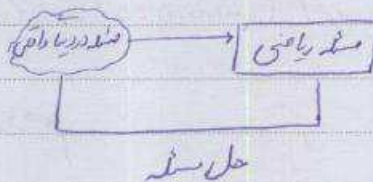 مسئله در دنیا واقعی
مسئله ریاضی
حل مسئله